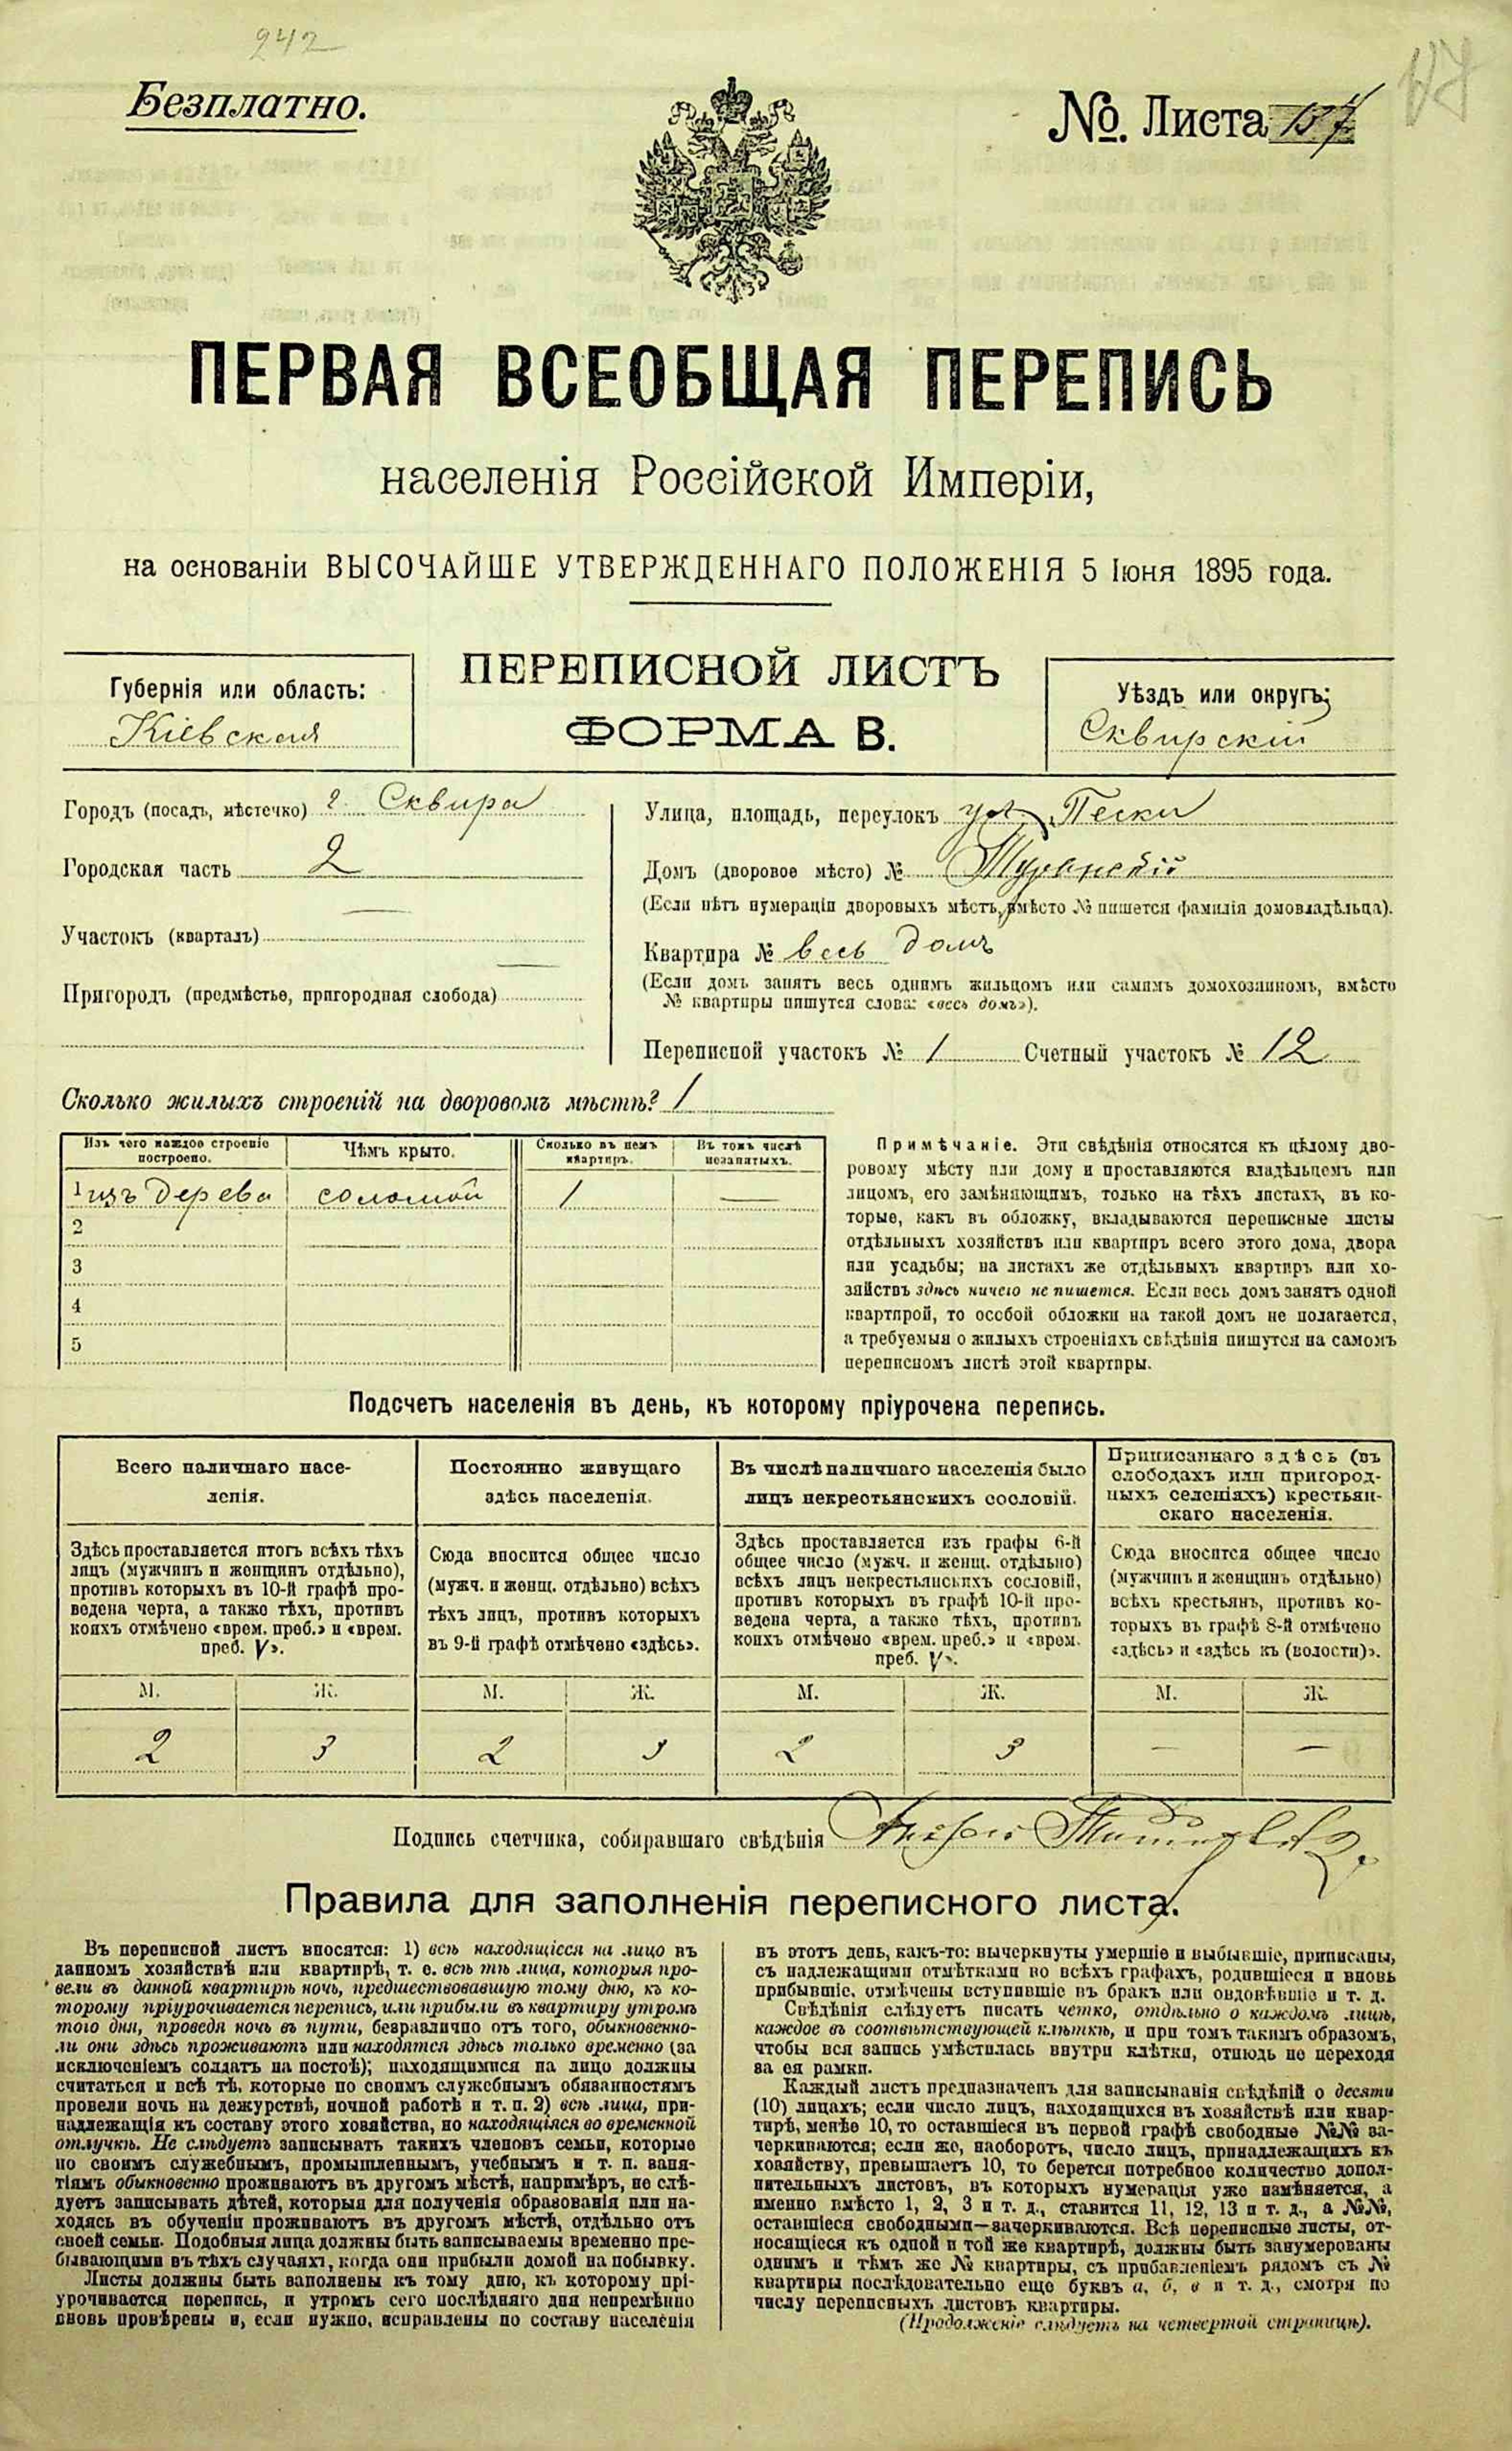 242
Безплатно.
№. Листа 157
ПЕРВАЯ ВСЕОБЩАЯ ПЕРЕПИСЬ
населенія Россійской Имперіи,
на основаніи ВЫСОЧАЙШЕ УТВЕРЖДЕННАГО ПОЛОЖЕНІЯ 5 Іюня 1895 года.
ПЕРЕПИСНОЙ ЛИСТЪ
ФОРМА В.
Губернія или область:
Кіевская
Уѣздъ или округъ:
Сквирскій
Городъ (посадъ, мѣстечко) г. Сквира
Городская часть 2
Участокъ (кварталъ) —
Пригородъ (предмѣстье, пригородная слобода) —
Улица, площадь, переулокъ ул. Пески
Домъ (дворовое мѣсто) №
(Если нѣтъ нумераціи дворовыхъ мѣстъ, вмѣсто № пишется фамилія домовладѣльца).
Квартира № весь домъ
(Если домъ занятъ весь однимъ жильцомъ или самимъ домохозяиномъ, вмѣсто
№ квартиры пишутся слова: «весь домъ»).
Переписной участокъ № 1 Счетный участокъ № 12
Сколько жилыхъ строеній на дворовомъ мѣстѣ? 1
Изъ чего каждое строеніе построено. Чѣмъ крыто. Сколько въ немъ квартиръ. Въ томъ числѣ незанятыхъ.
1 изъ дерева соломой 1 —
2
3
4
5
Примѣчаніе. Эти свѣдѣнія относятся къ цѣлому дво-
ровому мѣсту или дому и проставляются владѣльцемъ или
лицомъ, его замѣняющимъ, только на тѣхъ листахъ, въ ко-
торые, какъ въ обложку, вкладываются переписные листы
отдѣльныхъ хозяйствъ или квартиръ всего этого дома, двора
или усадьбы; на листахъ же отдѣльныхъ квартиръ или хо-
зяйствъ здѣсь ничего не пишется. Если весь домъ занятъ одной
квартирой, то особой обложки на такой домъ не полагается,
а требуемыя о жилыхъ строеніяхъ свѣдѣнія пишутся на самомъ
переписномъ листѣ этой квартиры.
Подсчетъ населенія въ день, къ которому пріурочена перепись.
Всего наличнаго насе-
ленія.
Здѣсь проставляется итогъ всѣхъ тѣхъ
лицъ (мужчинъ и женщинъ отдѣльно),
противъ которыхъ въ 10-й графѣ про-
ведена черта, а также тѣхъ, противъ
коихъ отмѣчено «врем. преб.» и «врем.
преб. V».
Постоянно живущаго
здѣсь населенія.
Сюда вносится общее число
(мужч. и женщ. отдѣльно) всѣхъ
тѣхъ лицъ, противъ которыхъ
въ 9-й графѣ отмѣчено «здѣсь».
Въ числѣ наличнаго населенія было
лицъ некрестьянскихъ сословій.
Здѣсь проставляется изъ графы 6-й
общее число (мужч. и женщ. отдѣльно)
всѣхъ лицъ некрестьянскихъ сословій,
противъ которыхъ въ графѣ 10-й про-
ведена черта, а также тѣхъ, противъ
коихъ отмѣчено «врем. преб.» и «врем.
преб. V».
Приписаннаго здѣсь (въ
слободахъ или пригород-
ныхъ селеніяхъ) крестьян-
скаго населенія.
Сюда вносится общее число
(мужчинъ и женщинъ отдѣльно)
всѣхъ крестьянъ, противъ ко-
торыхъ въ графѣ 8-й отмѣчено
«здѣсь» и «здѣсь къ (волости)».
М. Ж. М. Ж. М. Ж. М. Ж.
2 3 2 3 2 3 — —
Подпись счетчика, собиравшаго свѣдѣнія
Правила для заполненія переписного листа.
Въ переписной листъ вносятся: 1) всѣ находящіеся на лицо въ
данномъ хозяйствѣ или квартирѣ, т. е. всѣ тѣ лица, которыя про-
вели въ данной квартирѣ ночь, предшествовавшую тому дню, къ ко-
торому пріурочивается перепись, или прибыли въ квартиру утромъ
того дня, проведя ночь въ пути, безразлично отъ того, обыкновенно-
ли они здѣсь проживаютъ или находятся здѣсь только временно (за
исключеніемъ солдатъ на постоѣ); находящимися на лицо должны
считаться и всѣ тѣ, которые по своимъ служебнымъ обязанностямъ
провели ночь на дежурствѣ, ночной работѣ и т. п. 2) всѣ лица, при-
надлежащія къ составу этого хозяйства, но находящіяся во временной
отлучкѣ. Не слѣдуетъ записывать такихъ членовъ семьи, которые
по своимъ служебнымъ, промышленнымъ, учебнымъ и т. п. заня-
тіямъ обыкновенно проживаютъ въ другомъ мѣстѣ, напримѣръ, не слѣ-
дуетъ записывать дѣтей, которыя для полученія образованія или на-
ходясь въ обученіи проживаютъ въ другомъ мѣстѣ, отдѣльно отъ
своей семьи. Подобныя лица должны быть записываемы временно пре-
бывающими въ тѣхъ случаяхъ, когда они прибыли домой на побывку.
Листы должны быть заполнены къ тому дню, къ которому прі-
урочивается перепись, и утромъ сего послѣдняго дня непремѣнно
вновь провѣрены и, если нужно, исправлены по составу населенія
въ этотъ день, какъ-то: вычеркнуты умершіе и выбывшіе, приписаны,
съ надлежащими отмѣтками во всѣхъ графахъ, родившіеся и вновь
прибывшіе, отмѣчены вступившіе въ бракъ или овдовѣвшіе и т. д.
Свѣдѣнія слѣдуетъ писать четко, отдѣльно о каждомъ лицѣ,
каждое въ соотвѣтствующей клѣткѣ, и при томъ такимъ образомъ,
чтобы вся запись умѣстилась внутри клѣтки, отнюдь не переходя
за ея рамки.
Каждый листъ предназначенъ для записыванія свѣдѣній о десяти
(10) лицахъ; если число лицъ, находящихся въ хозяйствѣ или квар-
тирѣ, менѣе 10, то оставшіеся въ первой графѣ свободные №№ за-
черкиваются; если же, наоборотъ, число лицъ, принадлежащихъ къ
хозяйству, превышаетъ 10, то берется потребное количество допол-
нительныхъ листовъ, въ которыхъ нумерація уже измѣняется, а
именно вмѣсто 1, 2, 3 и т. д., ставится 11, 12, 13 и т. д., а №№,
оставшіеся свободными—зачеркиваются. Всѣ переписные листы, от-
носящіеся къ одной и той же квартирѣ, должны быть занумерованы
однимъ и тѣмъ же № квартиры, съ прибавленіемъ рядомъ съ №
квартиры послѣдовательно еще буквъ а, б, в и т. д., смотря по
числу переписныхъ листовъ квартиры.
(Продолженіе слѣдуетъ на четвертой страницѣ).